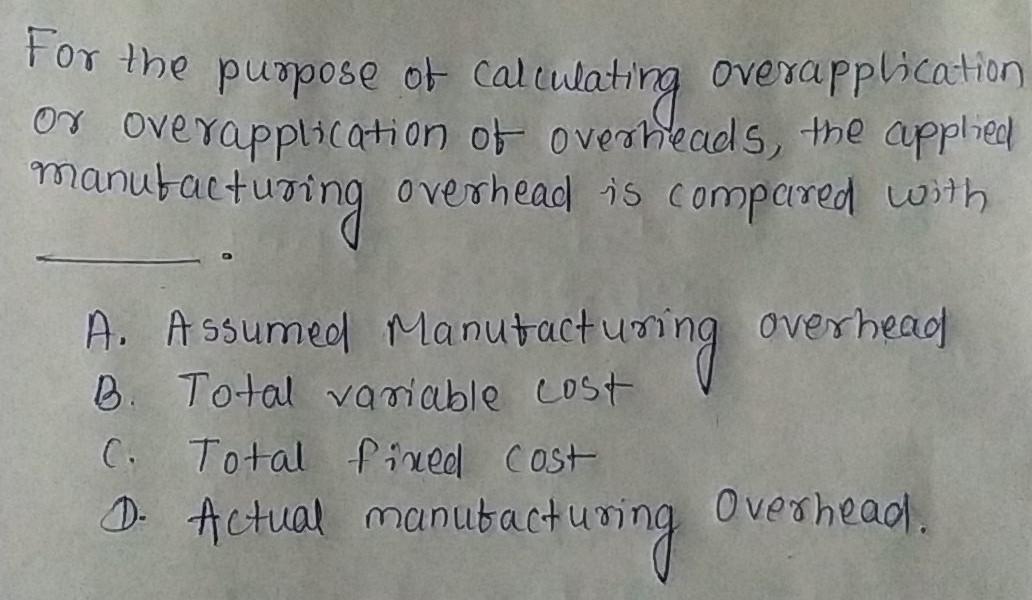 For the purpose of calculating overapplication
or overapplication of overheads, the applied
manufacturing overhead is compared with
________.
A. Assumed Manufacturing overhead
B. Total variable cost
C. Total fixed cost
D. Actual manufacturing Overhead.